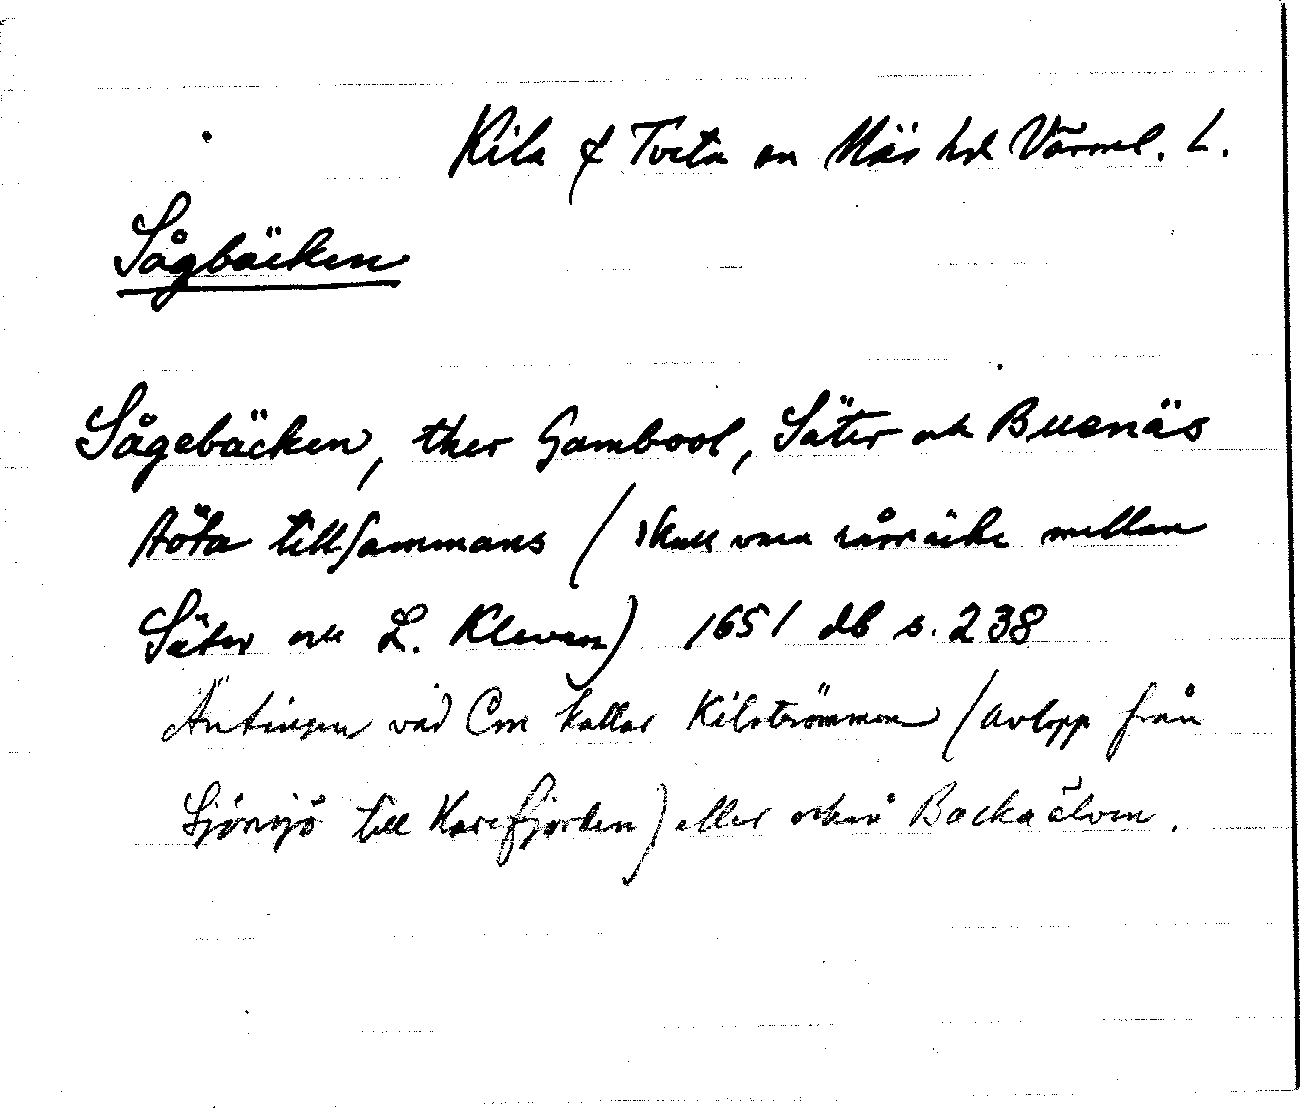 Kila & Tveta sn Näs hd Värml. L.
Sågbäcken
Sågebäcken, ther Gambool, Säter och Buenäs
stöta tillsammans (skall vara råmärke mellan
Säter och L. Kleven) 1651 db s. 238
Antingen vad Cm kallar Kilströmmen (avlopp från
till Harefjorden) eller också Backaälven.